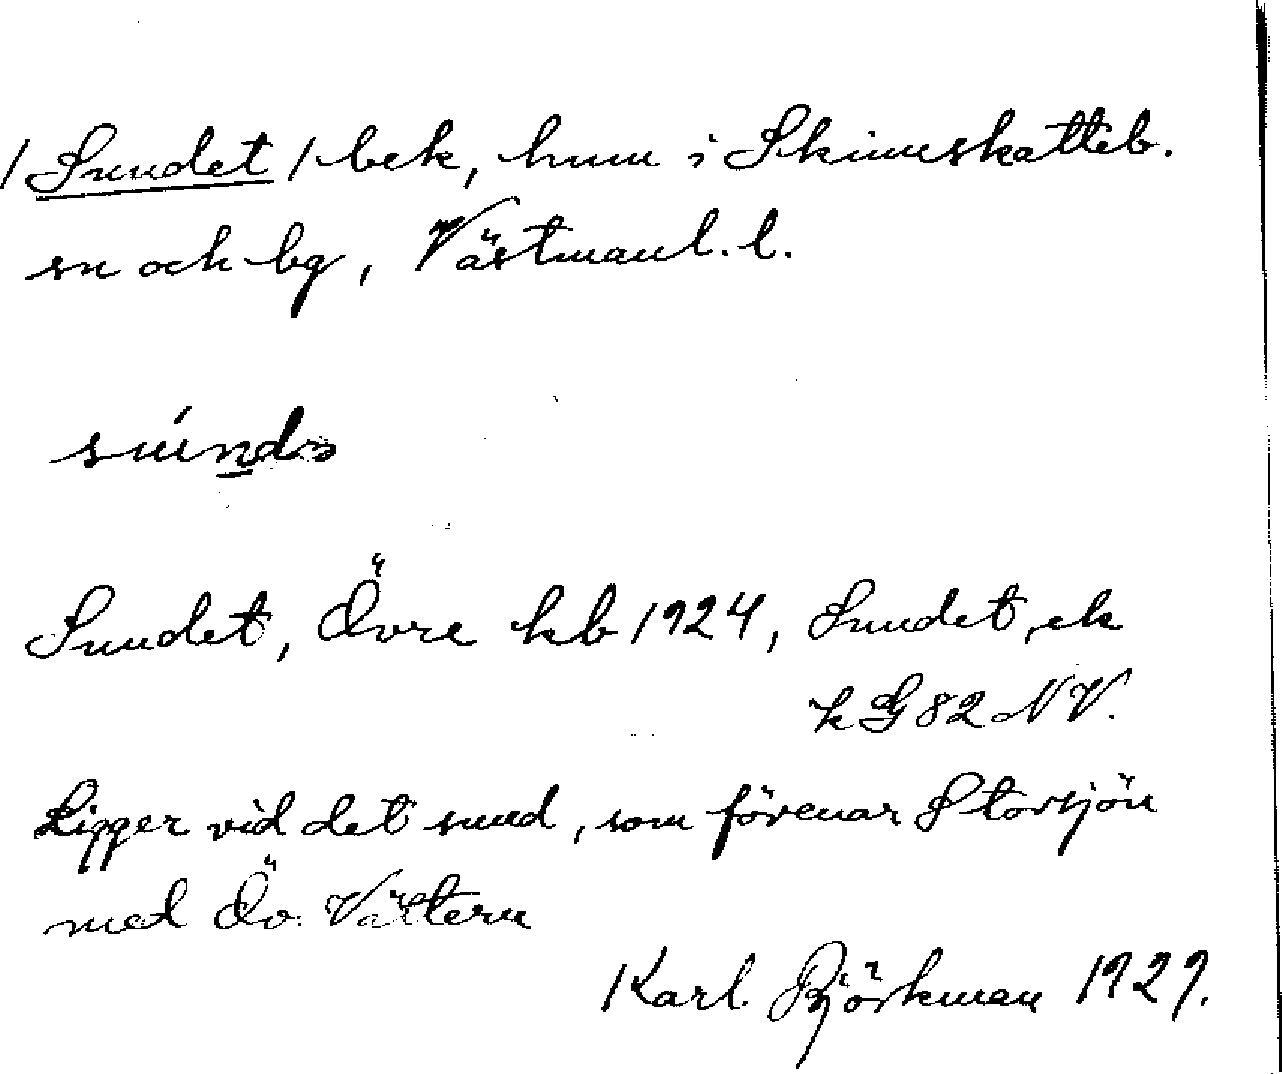 /Sundet/ bek, hmn i Skinnskatteb.
sn och bg, Västmanl. l.
Sundet, Övre kb 1924, Sundet, ek
k G 82 NV.
Ligger vid det sund, som förenar Storsjön
med Öv. Vättern
Karl Björkman 1929.